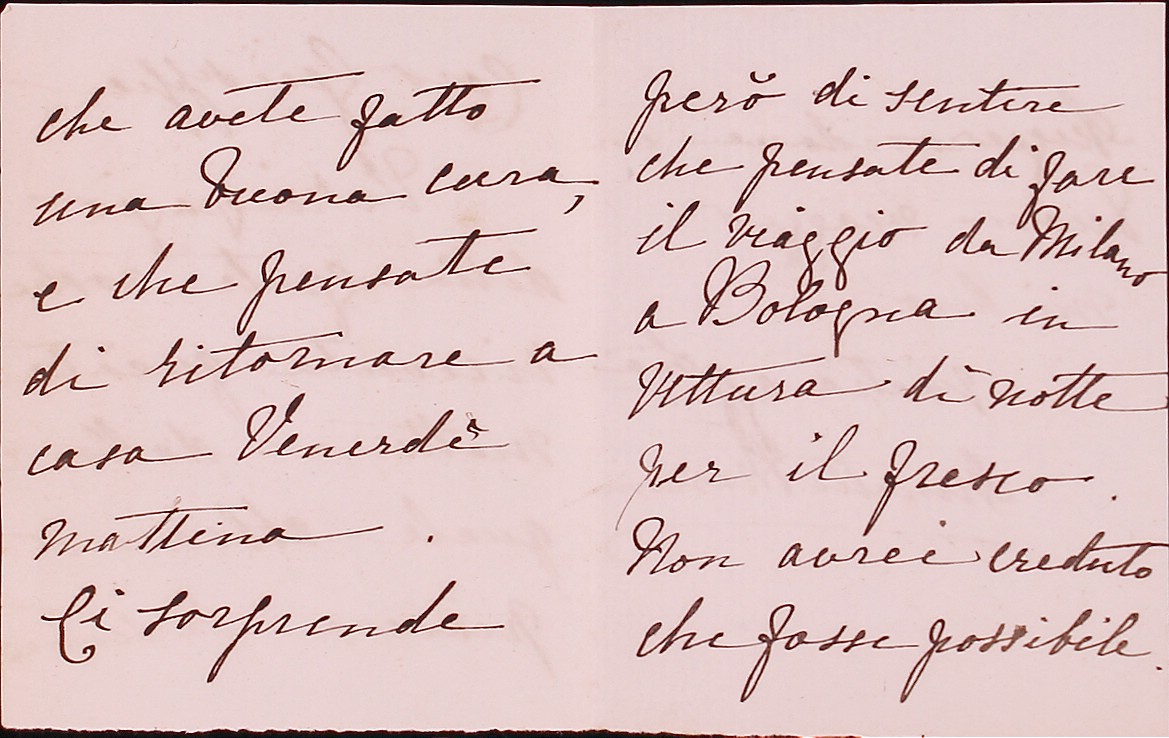 che avete fatto
una buona cura,
e che pensate
di ritornare a
casa Venerdì
mattina.
Ci sorprende
però di sentire
che pensate di fare
il viaggio da Milano
a Bologna in
vettura di notte
per il fresco.
Non avrei creduto
che fosse possibile.